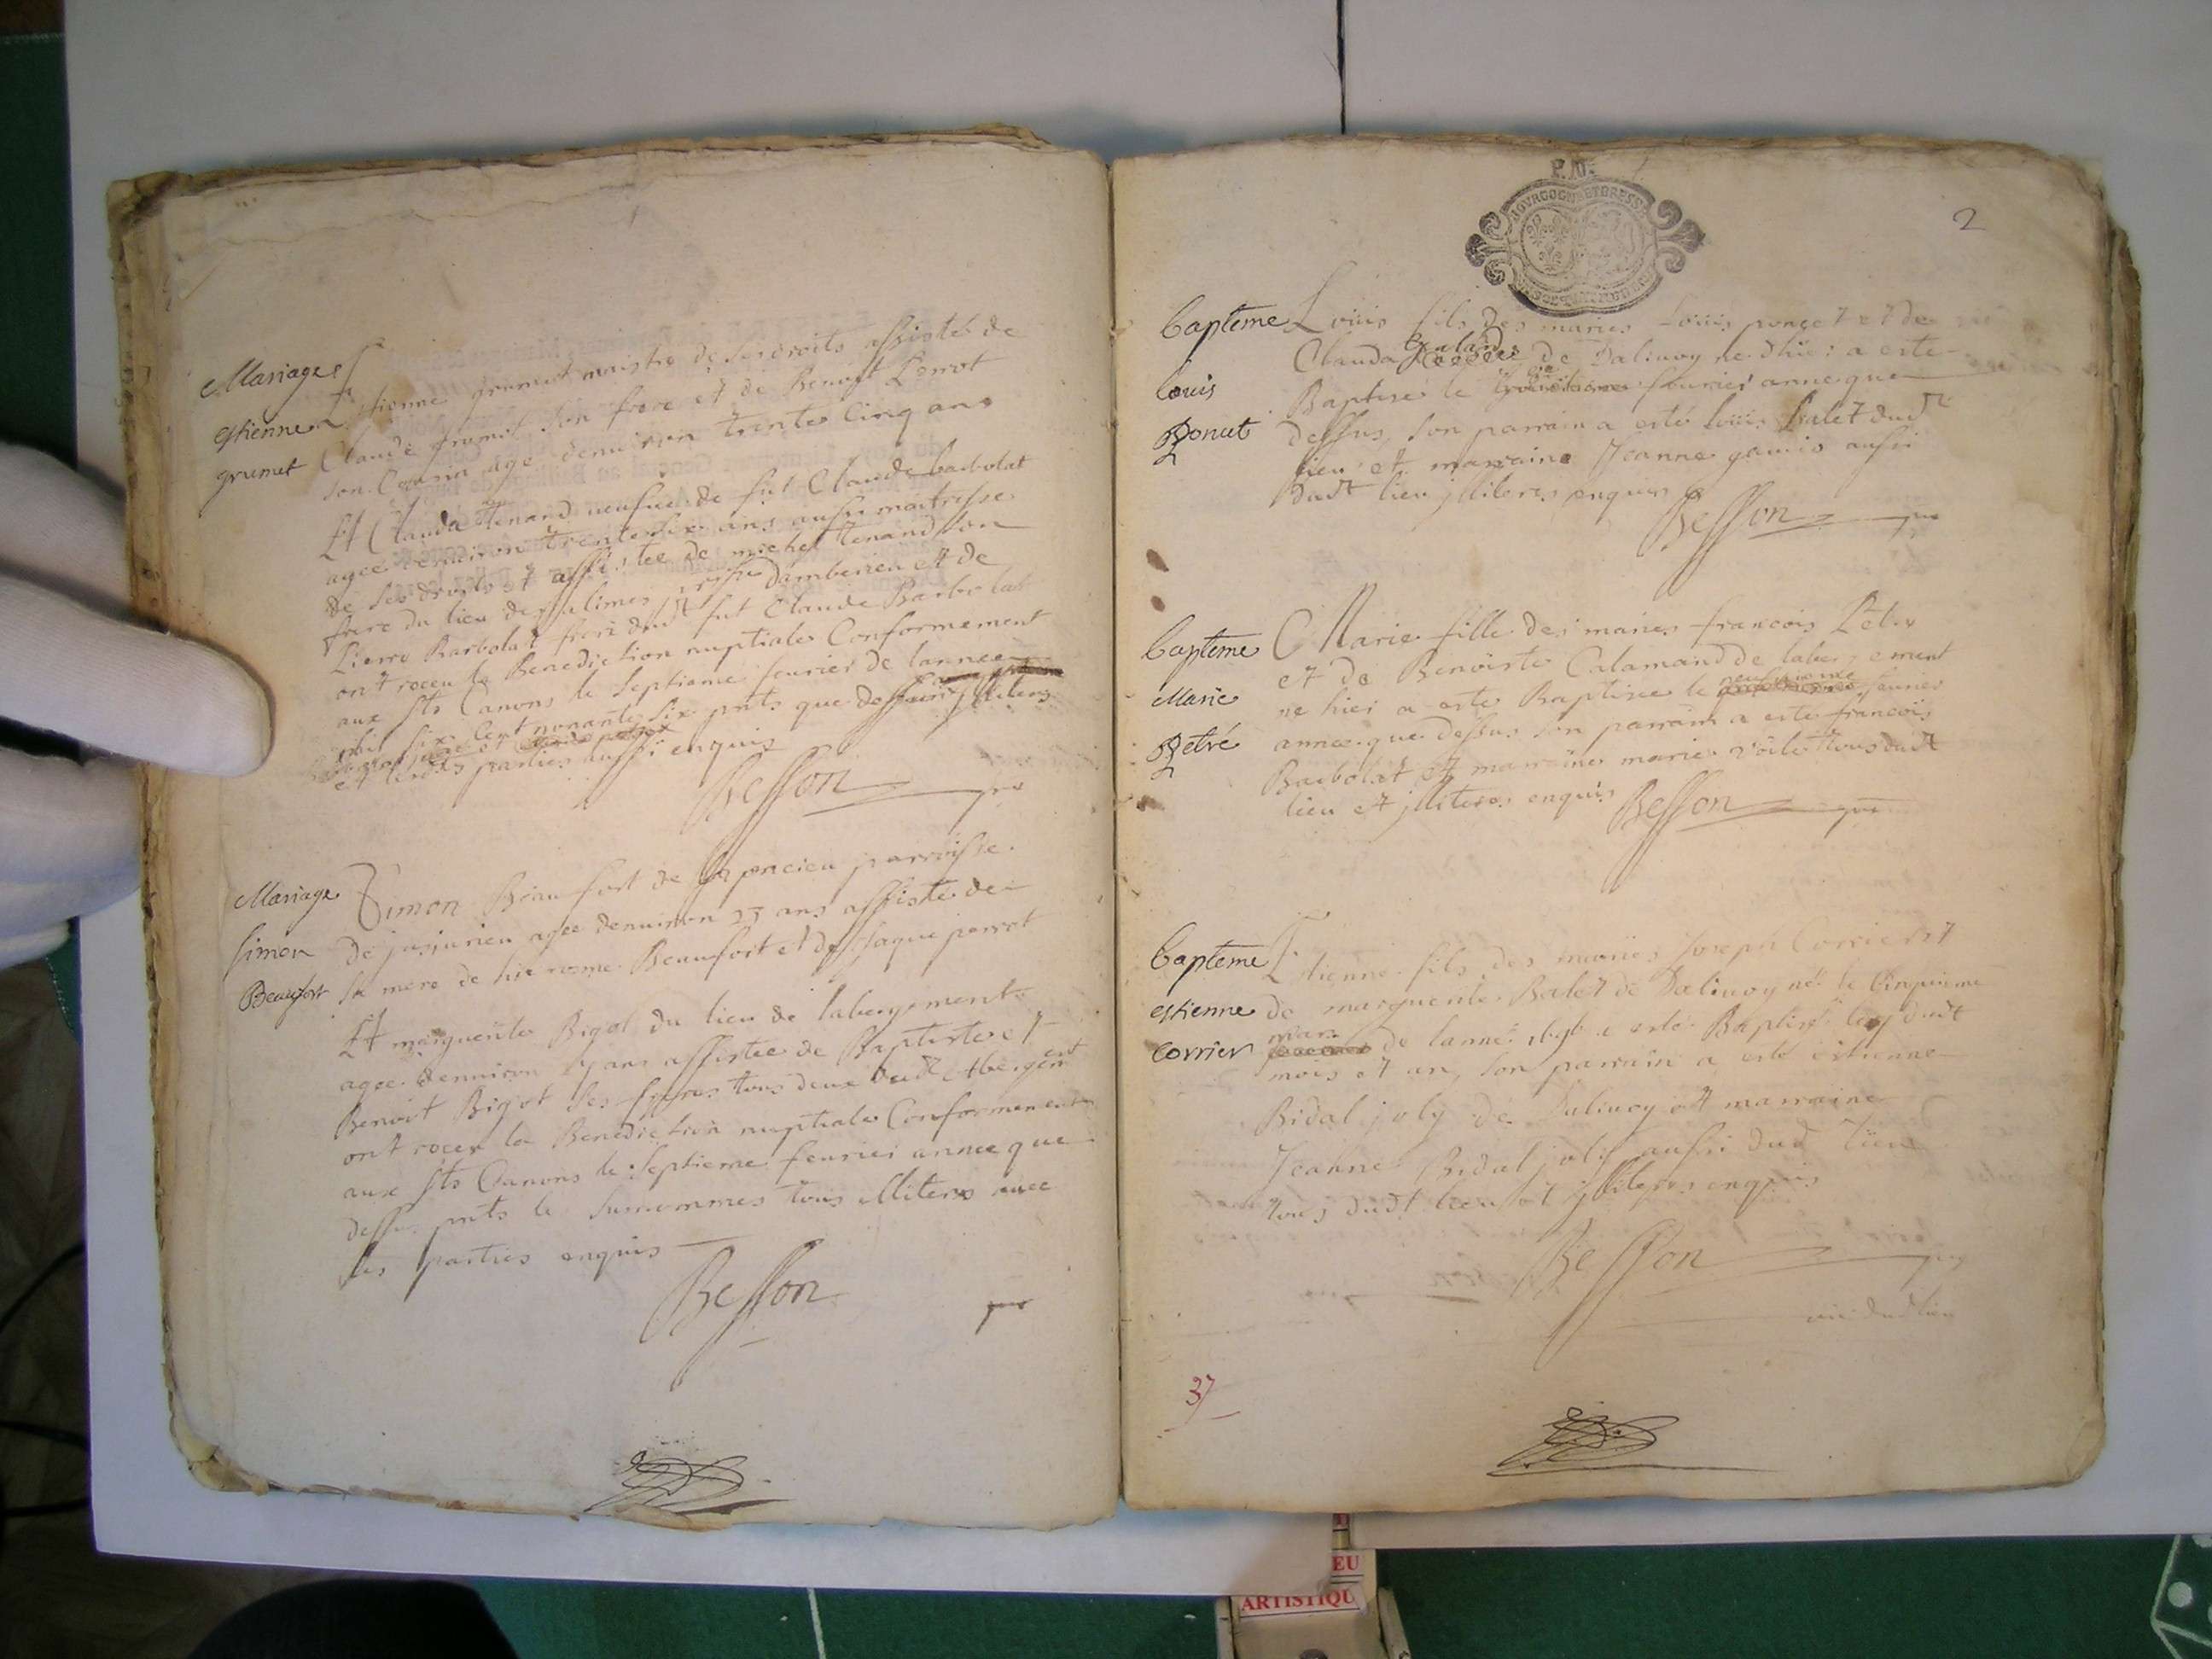 Mariage
estienne
grumet
Estienne grumet maistre de ses droits assisté de
Claude grumet son frere et de Benoist Perrot
son Cousin age denuiron trente Cinq ans
Et Clauda tenand veufue de fut Claude barbolat
agee denuiron trente six ans aussi maitresse
de ses droits et assistee de michel tenand son
frere du lieu de dambeirieu et de
Pierre Barbolat frere dudt fut Claude Barbolat
ont receu la Benediction nuptiale Conformement
aux sts Canons le septieme feurier de lannee
six Cent nonante six pnts que dessus illiteres
et parties aussi enquis
Besson
Mariage
simon
Beaufort
Simon Beaufort de parroisse
de jusurieu agee denuiron 23 ans assisté de
sa mere de hierome Beaufort et de Jaque perrot
Et marguerite Bigot du lieu de labergement
agee denuiron ans assistee de Baptiste et
Benoit Bigot ses freres tous deux dudt Abergemt
ont receu la Benediction nuptiale Conformement
aux sts Canons le septieme feurier annee que
dessus pnts le surnommes tous illiteres auec
les parties enquis
Besson
P.D.
BOVRGOGNE ET BRESSE
2
baptême
louis
Poncet
Loüis fils des maries Loüis ponçet et de
Clauda de Daliuoy ne dhier a esté
Baptisé le feurier annee que
dessus, son parrain a esté loüis Balet dudt
lieu et marraine Jeanne aussi
dudt lieu illiteres enquis
Besson
baptême
Marie
Petré
Marie fille des maries francois Petré
et de Benoiste Calamand de labergement
ne hier a esté Baptisee le neufuieme feurier
annee que dessus son parrain a esté francois
Barbolat et marraine marie tous dudt
lieu et illiteres enquis
Besson
baptême
estienne
Corrier
Etienne fils des maries Joseph Corrier et
de marguerite Balet de Daliuoy né le Cinquieme
mars de lannee 1696 a esté Baptisé le dudt
mois et an, son parrain a esté etienne
Bidal joly de Daliuoy et marraine
Jeanne Bidal joly aussi dud lieu
tous dudt lieu et illiteres enquis
Besson
37
EU
ARTISTIQU